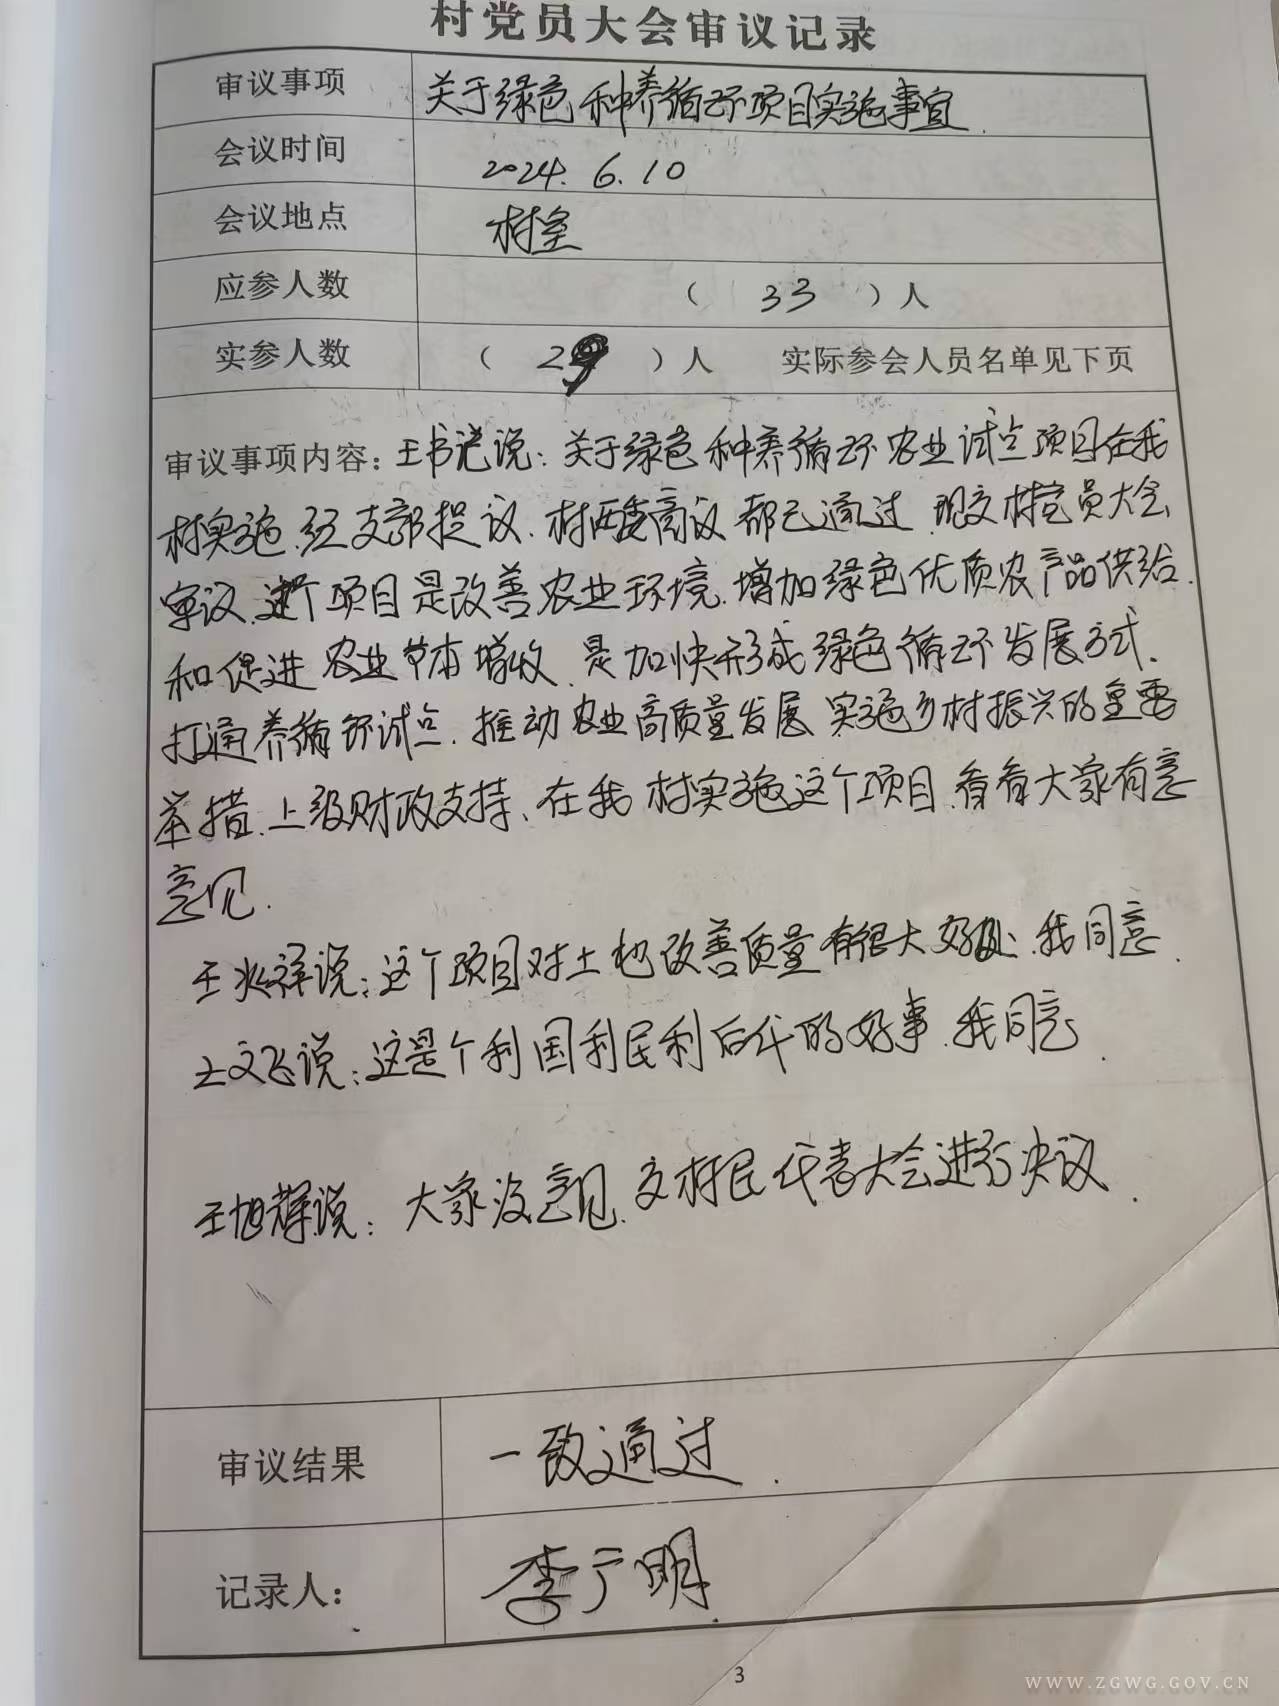 村党员大会审议记录
审议事项 关于绿色种养循环项目实施事宜.
会议时间 2024.6.10
会议地点 村室
应参人数 ( 33 )人
实参人数 ( 29 )人 实际参会人员名单见下页
审议事项内容: 王书记说: 关于绿色种养循环农业试点项目在我
村实施.经支部提议.村两委商议都已通过.现交村党员大会
审议.这个项目是改善农业环境.增加绿色优质农产品供给.
和促进农业节本增收.是加快形成绿色循环发展方式.
打通养循环试点.推动农业高质量发展.实施乡村振兴的重要
举措.上级财政支持、在我村实施这个项目.看看大家有意
意见.
王兆祥说:这个项目对土地改善质量有很大好处.我同意.
王文飞说:这是个利国利民利后代的好事.我同意.
王旭辉说: 大家没意见.交村民代表大会进行决议.
审议结果 一致通过.
记录人: 李广明
3
WWW.ZGWG.GOV.CN